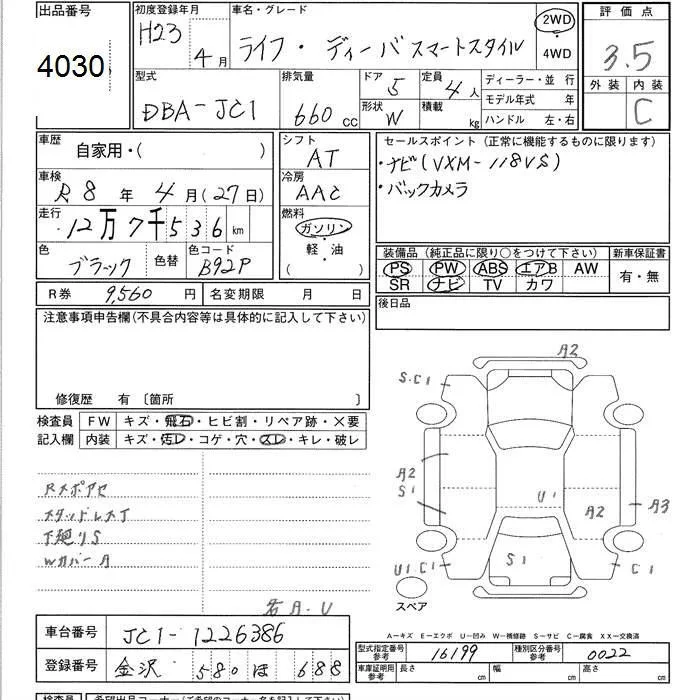 出品番号
4030
初度登録年月
H23 4月
車名・グレード
ライフ・ディーバスマートスタイル
2WD
4WD
評価点
3.5
外装 内装
C
型式
DBA-JC1
排気量
660 CC
ドア 5
形状 W
定員 4人
積載 kg
ディーラー・並 行
モデル年式 年
ハンドル 左・右
車歴
自家用・( )
車検
R8年4月(27日)
走行
12万7千536km
色
ブラック
色替
色コード
B92P
シフト
AT
冷房
AAC
燃料
ガソリン
軽・油
( )
セールスポイント(正常に機能するものに限ります)
・ナビ(VXM-118VS)
・バックカメラ
装備品(純正品に限り○をつけて下さい)
PS PW ABS エアB AW
SR ナビ TV カワ
新車保証書
有・無
R券 9,560円
名変期限 月 日
後日品
注意事項申告欄(不具合内容等は具体的に記入して下さい)
修復歴 有〔箇所 〕
検査員
記入欄
FW キズ・飛石・ヒビ割・リペア跡・×要
内装 キズ・汚レ・コゲ・穴・スレ・キレ・破レ
Rスポアセ
スタッドレスT
下廻りS
WカバーA
右A.U
A2
S.C1
A2
S1
U1
A2
A3
S1
U1.C1
C1
スペア
A-キズ E-エクボ U-凹み W-補修跡 S-サビ C-腐食 XX-交換済
車台番号
JC1-1226386
登録番号
金沢 580 ほ 688
型式指定番号
参考
16199
種別区分番号
参考
0022
車庫証明用
参考
長さ
幅
高さ
検査員
希望出品コーナー(ご希望のコーナー名を記入して下さい)